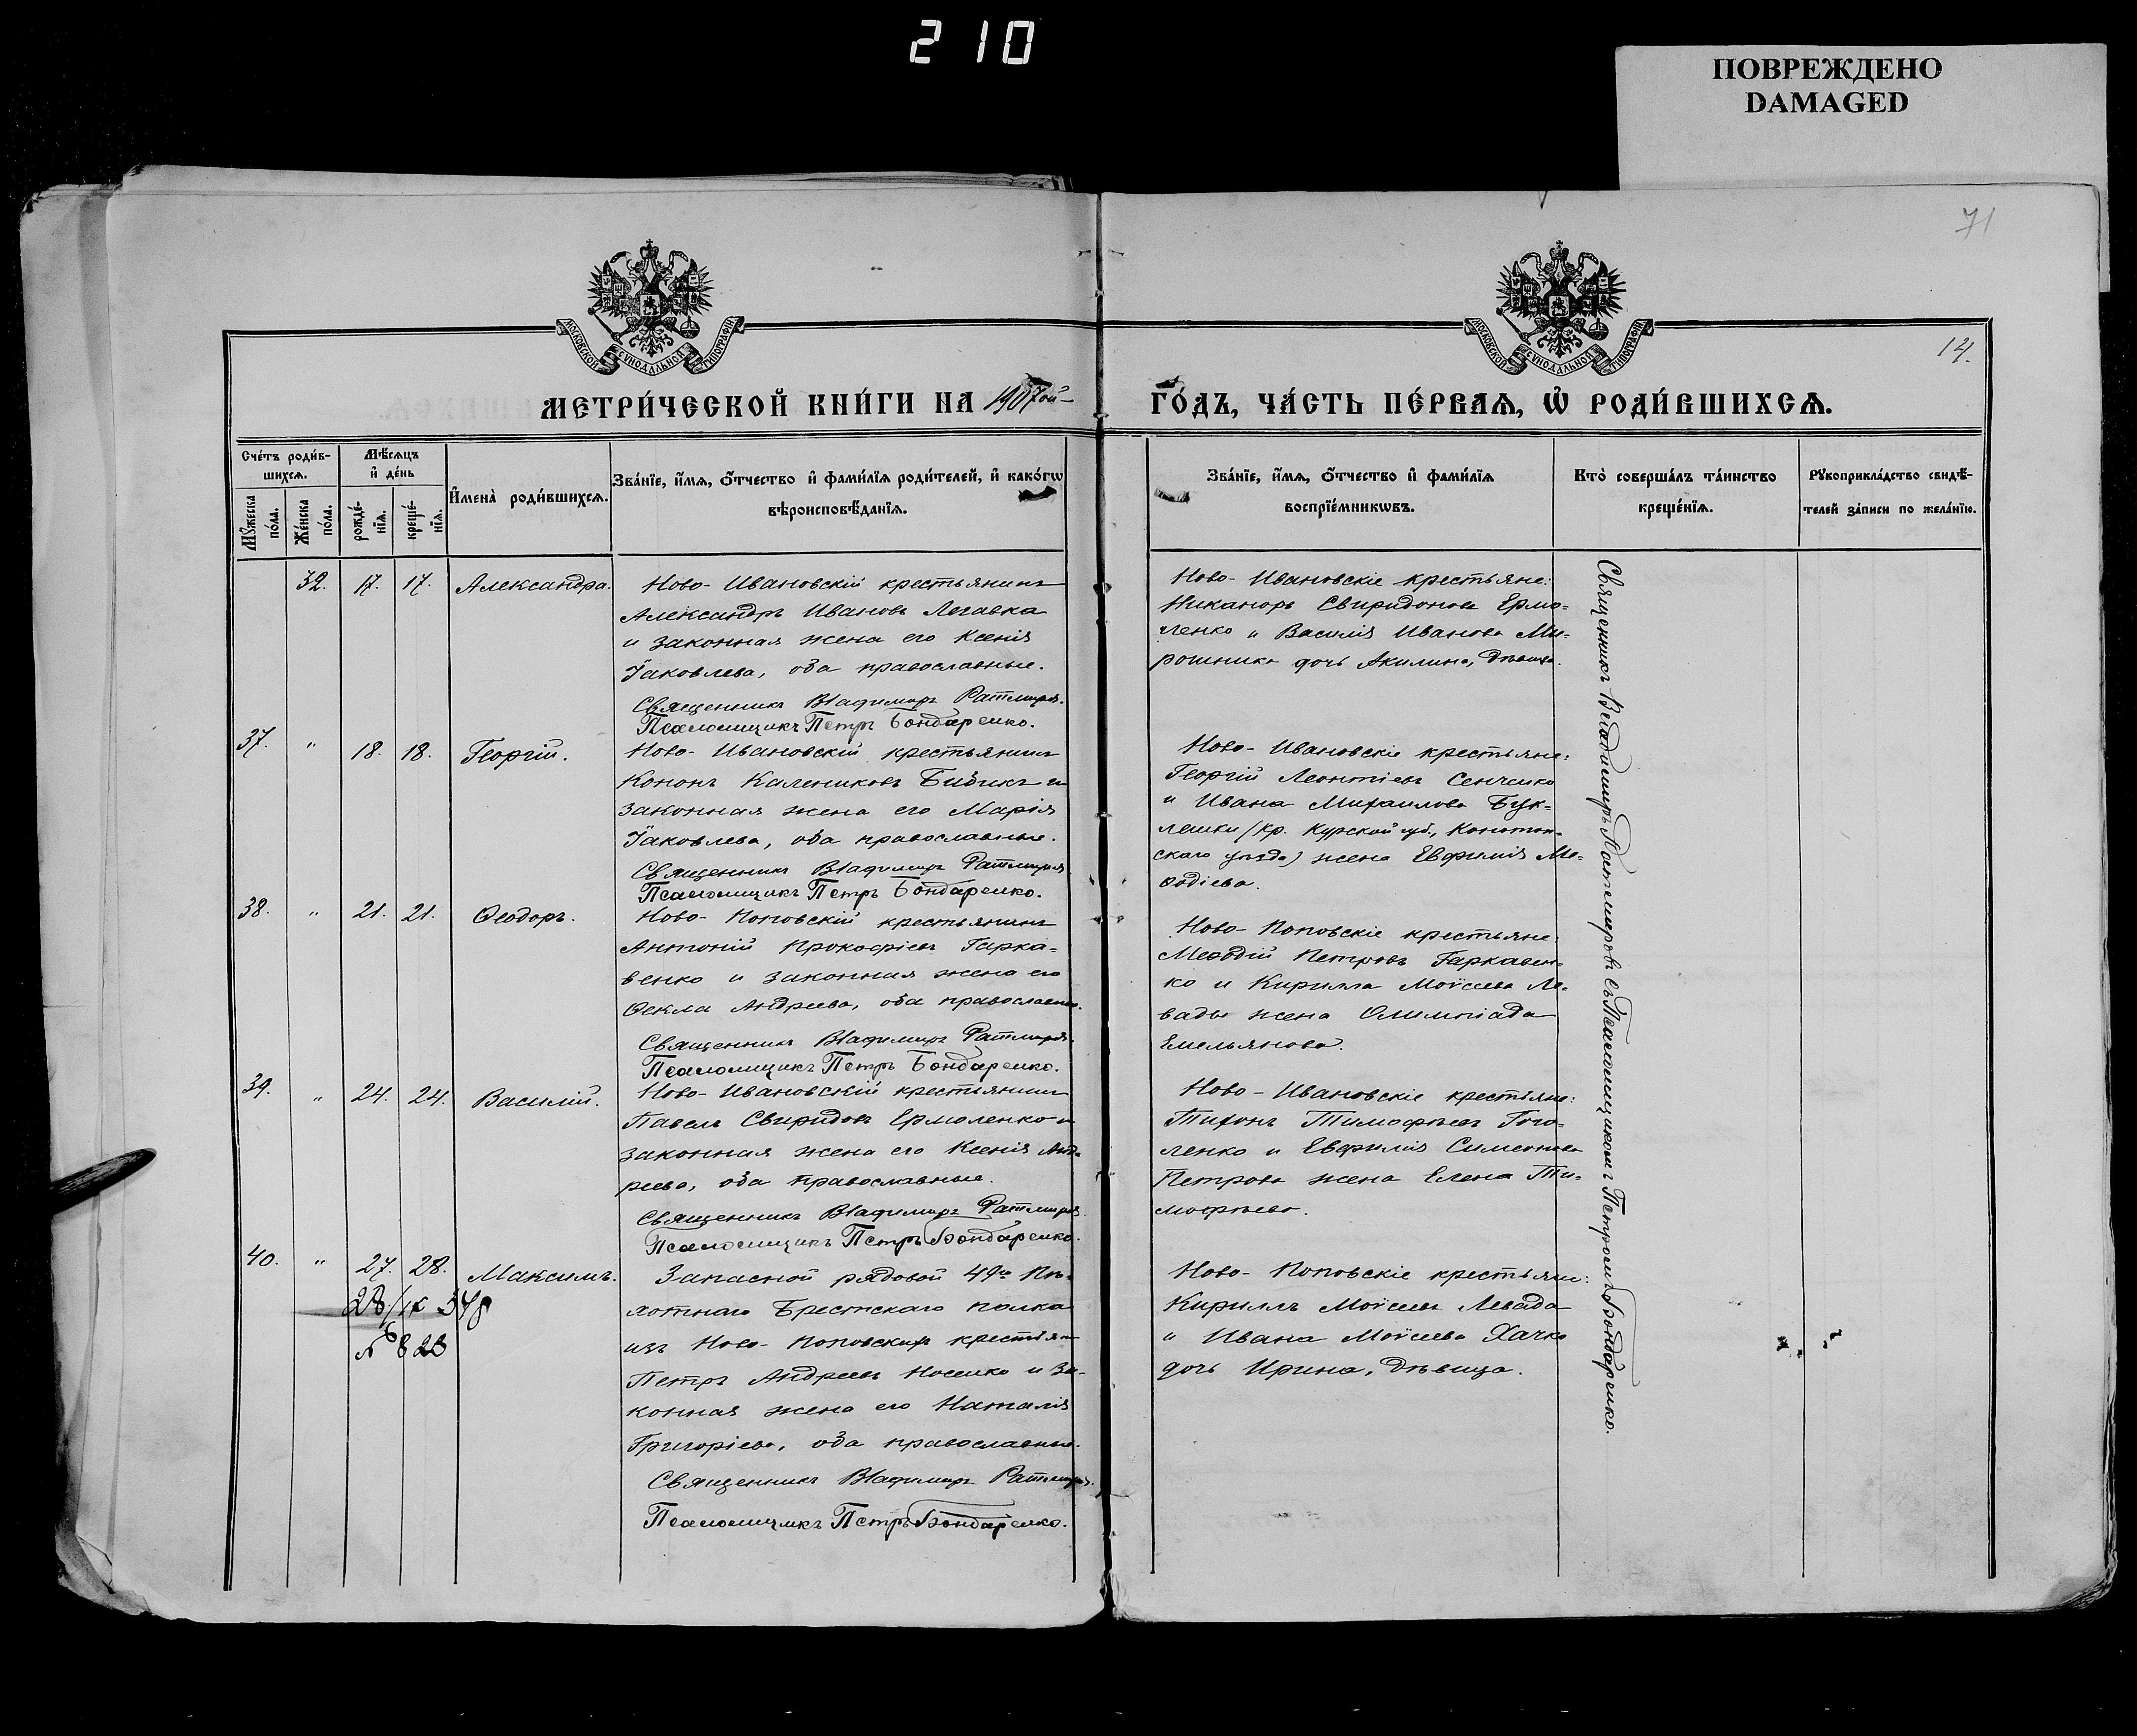 210
ПОВРЕЖДЕНО
DAMAGED
71
14.
МОСКОВСКОЙ СѴНОДАЛЬНОЙ ТИПОГРАФІИ
МОСКОВСКОЙ СѴНОДАЛЬНОЙ ТИПОГРАФІИ
МЕТРИ́ЧЕСКОЙ КНИ́ГИ НА 1907ой
ГО́ДЪ, ЧА́СТЬ ПЕ́РВАѦ, Ѡ҆ РОДИ́ВШИХСѦ.
Сче́тъ роди́в-
шихсѧ.
Мꙋ́жеска по́ла.
Же́нска по́ла.
Мѣ́сѧцъ
и҆ де́нь
рожде́-
нїѧ.
креще́-
нїѧ.
И҆мена̀ роди́вшихсѧ.
Зва́нїе, и҆́мѧ, ѻ҆́тчество и҆ фами́лїѧ роди́телей, и҆ како́гѡ
вѣроисповѣ́данїѧ.
Зва́нїе, и҆́мѧ, ѻ҆́тчество и҆ фами́лїѧ
воспрїе́мникѡвъ.
Кто̀ соверша́лъ та́инство
креще́нїѧ.
Рꙋкоприкла́дство свидѣ́-
телей за́писи по жела́нїю.
32. 17. 17. Александра.
Ново-Ивановскій крестьянинъ
Александръ Ивановъ Легавка
и законная жена его Ксенія
Іаковлева, оба православные.
Священникъ Владимиръ Ратмиров.
Псаломщикъ Петръ Бондаренко.
Ново-Ивановскіе крестьяне:
Никаноръ Свиридоновъ Ермо-
ленко и Василія Иванова Ми-
рошника дочь Акилина, дѣвица.
37. " 18. 18. Георгій.
Ново-Ивановскій крестьянинъ
Кононъ Калениковъ Бибикъ и
законная жена его Марія
Іаковлева, оба православные.
Священникъ Владимиръ Ратмиров
Псаломщикъ Петръ Бондаренко.
Ново-Ивановскіе крестьяне:
Георгій Леонтіевъ Сенченко
и Ивана Михаилова Бук-
лешки (кр. Курской губ., Конотоп-
скаго уѣзда) жена Евфимія Ме-
ѳодіева.
38. " 21. 21. Ѳеодоръ.
Ново-Поповскій крестьянинъ
Антоній Прокофіевъ Гарка-
венко и законная жена его
Ѳекла Андреева, оба православные.
Священникъ Владимиръ Ратмиров.
Псаломщикъ Петръ Бондаренко.
Ново-Поповскіе крестьяне:
Меѳодій Петровъ Гаркавен-
ко и Кирилла Моѵсеева Ле-
вады жена Олимпіада
Емельянова.
39. " 24. 24. Василій.
Ново-Ивановскій крестьянинъ
Павелъ Свиридовъ Ермоленко и
законная жена его Ксенія Анд-
реева, оба православные.
Священникъ Владимиръ Ратмиров.
Псаломщикъ Петръ Бондаренко.
Ново-Ивановскіе крестьяне:
Тихонъ Тимофѣевъ Гого-
ленко и Евфимія Симеонова
Петрова жена Елена Ти-
мофѣева.
40. " 27. 28. Максимъ.
28/IX 348
№ 823
Запасной рядовой 49го Пѣ-
хотнаго Брестскаго полка
изъ Ново-Поповскихъ крестьянъ
Петръ Андреевъ Носенко и за-
конная жена его Наталія
Григоріева, оба православные.
Священникъ Владимиръ Ратмиров.
Псаломщикъ Петръ Бондаренко.
Ново-Поповскіе крестьяне:
Кириллъ Моѵсеевъ Левада
и Ивана Моѵсеева Хачко
дочь Ирина, дѣвица.
Священникъ Владимиръ Ратмировъ съ Псаломщикомъ Петромъ Бондаренко.